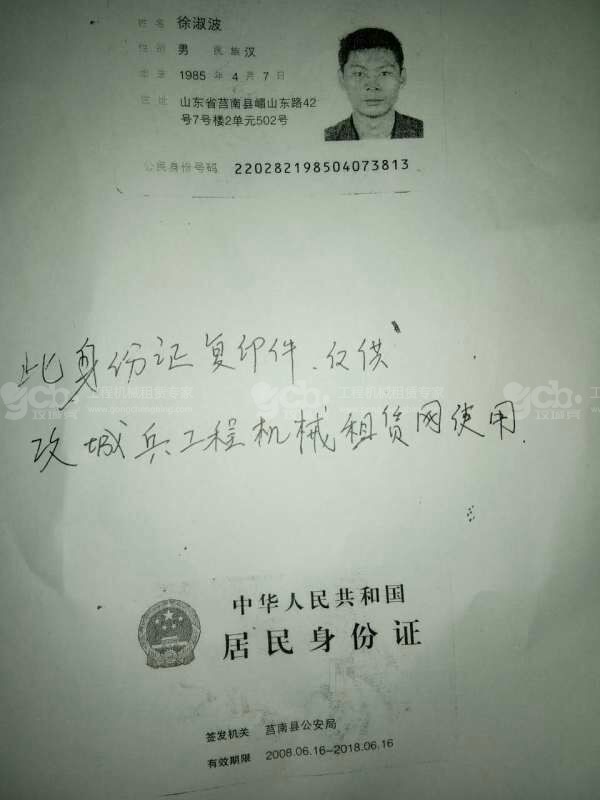 姓名 徐淑波
性别 男 民族 汉
出生 1985 年 4 月 7 日
住址 山东省莒南县嵋山东路42
号7号楼2单元502号
公民身份号码 220282198504073813
此身份证复印件.仅供
gcb. 工程机械租赁专家
攻城兵
攻城兵工程机械租赁网使用.
中华人民共和国
居民身份证
签发机关 莒南县公安局
有效期限 2008.06.16~2018.06.16